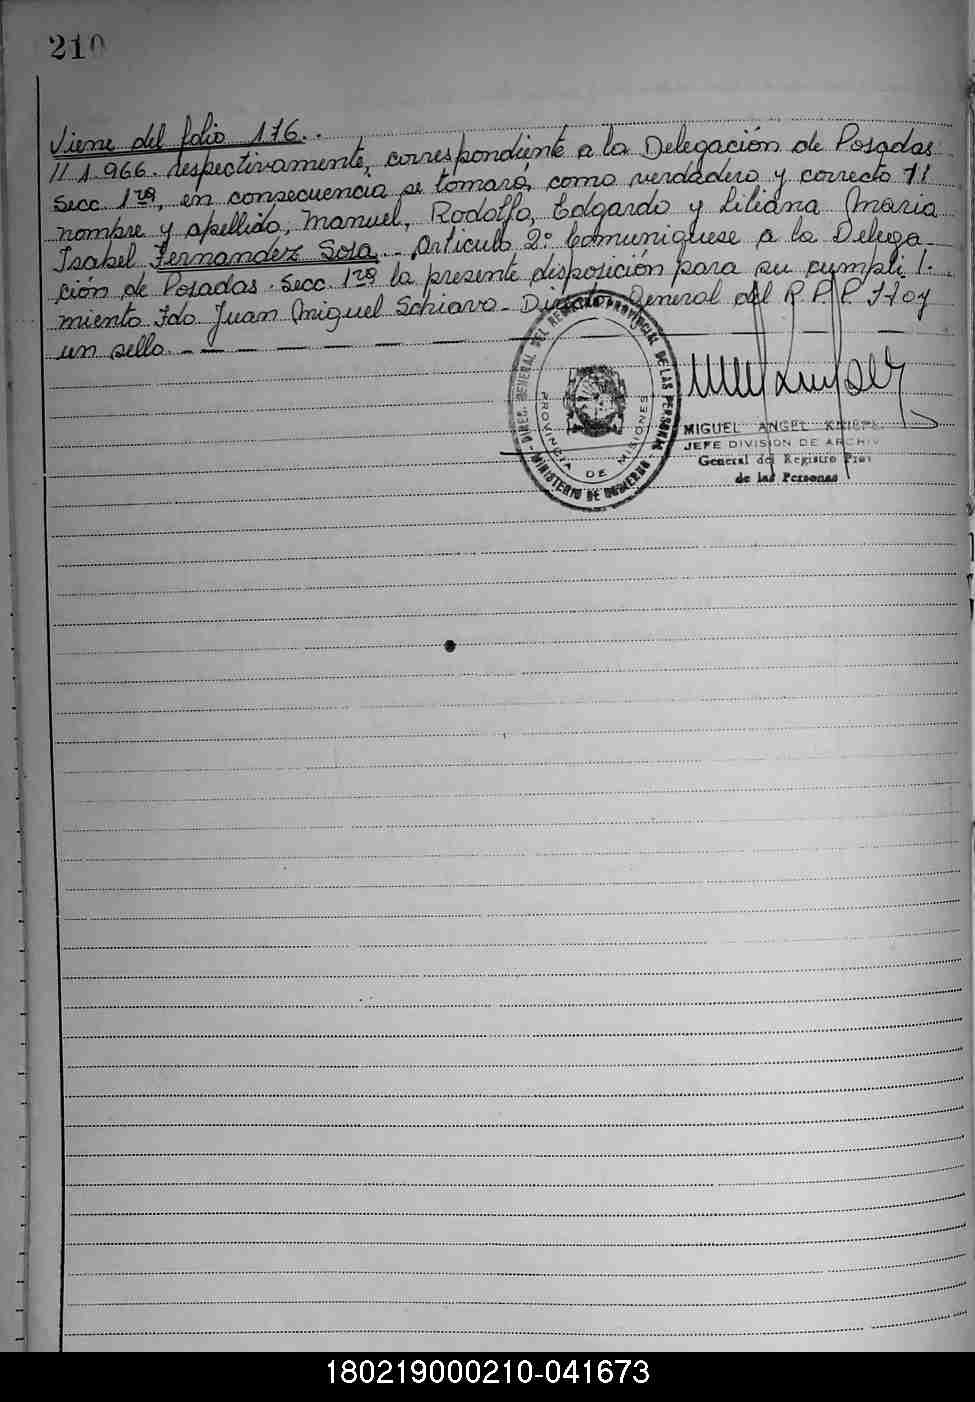 210
Viene del folio 176..
II 1.966. respectivamente, correspondiente a la Delegación de Posadas
Secc 1ra, en consecuencia se tomará, como verdadero y correcto el
nombre y apellido, Manuel, Rodolfo, Edgardo y Liliana Maria
Isabel Fernandez Sosa. Articulo 2º Comuniquese a la Delega-
ción de Posadas. Secc. 1ra la presente disposición para su cumpli
miento Fdo Juan Miguel Schiavo - Director General del R.P.P. Hay
un sello.
DIREC. GENERAL DEL REGISTRO PROVINCIAL DE LAS PERSONAS
PROVINCIA DE MISIONES
MINISTERIO DE GOBIERNO
MIGUEL ANGEL
JEFE DIVISION DE ARCHIV
General del Registro Prov
de las Personas
180219000210-041673